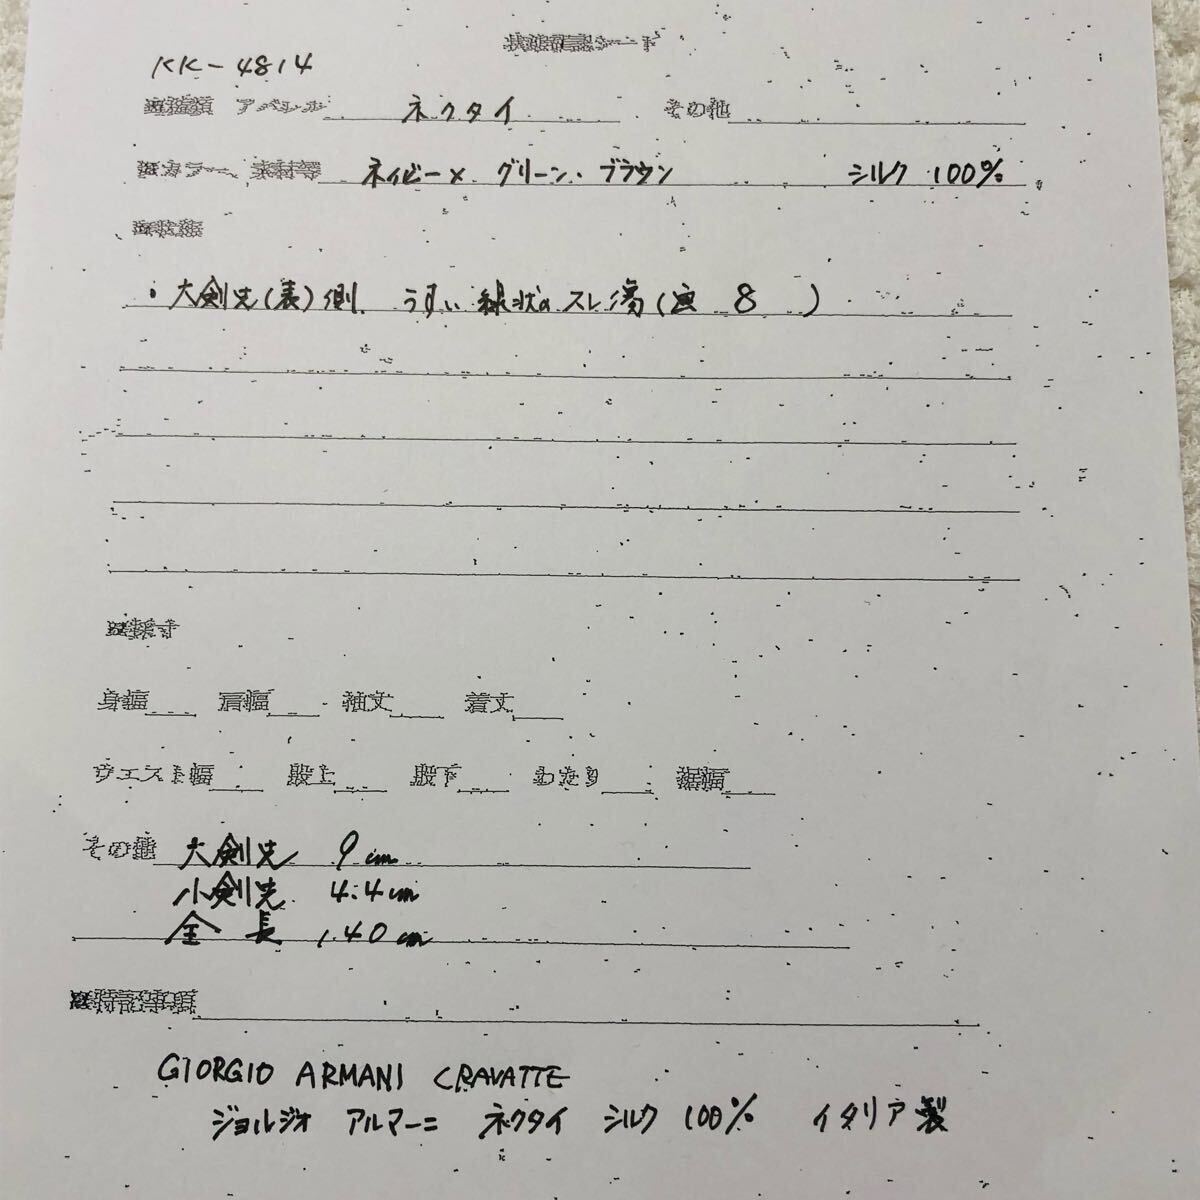 KK-4814
アパレル ネクタイ その他
カラー、素材等 ネイビー× グリーン・ブラウン シルク 100%
状態
・大剣先(表)側、うすい線状のスレ傷(写 8 )
採寸
身幅 肩幅 袖丈 着丈
ウエスト幅 股上 股下 わたり 裾幅
その他 大剣先 9cm
小剣先 4.4cm
全 長 140cm
特記事項
GIORGIO ARMANI CRAVATTE
ジョルジオ アルマーニ ネクタイ シルク 100% イタリア製